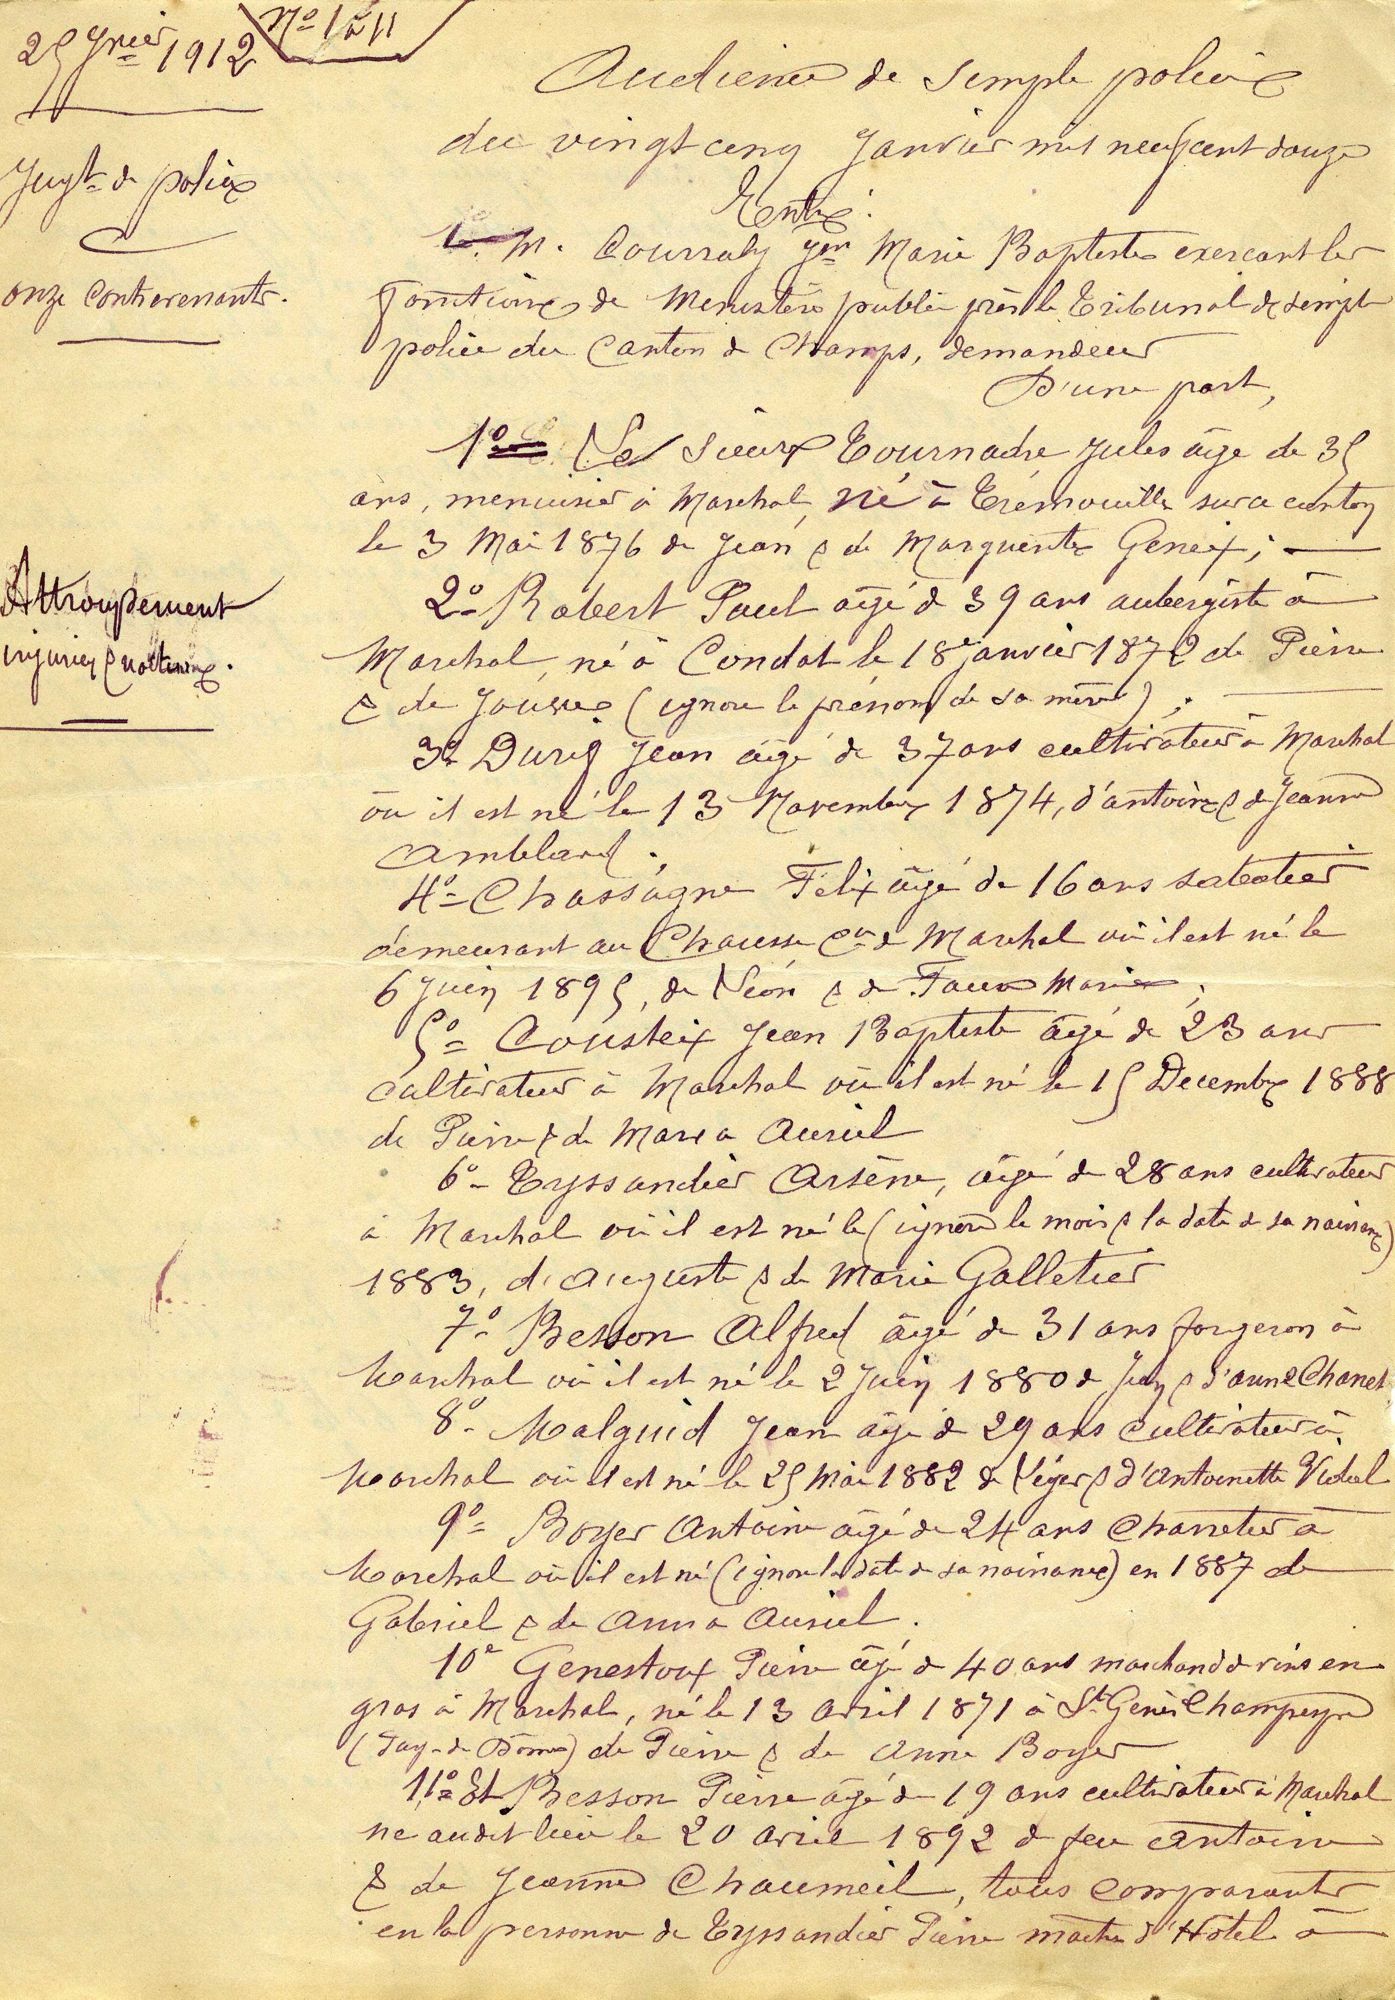 25 Jvier 1912
No 1 à 11
Jugt de police
onze contrevenants.
Attroupement
injurieux & nocturne.
Audience de simple police
du vingt cinq Janvier mil neuf cent douze
Entre:
M. Courraly Jean Marie Baptiste exercant les
fonctions de Ministère public près le Tribunal de simple
police du Canton de Champs, demandeur
D'une part,
1o Le Sieur Tournadre Jules âgé de 35
ans, menuisier à Marchal, né à Trémouille sur ce canton
le 3 Mai 1876 de Jean & de Marguerite Geneix;
2o Robert Paul âgé de 39 ans aubergiste à
Marchal, né à Condat le 18 Janvier 1872 de Pierre
& de Jouve (ignore le prénom de sa mère);
3o Durif Jean âgé de 37 ans cultivateur à Marchal
où il est né le 13 Novembre 1874, d'antoine & de Jeanne
Amblard.
4o Chassagne Félix âgé de 16 ans sabotier
demeurant au Chausse Cne de Marchal où il est né le
6 Juin 1895, de Léon & de Faux Marie;
5o Cousteix Jean Baptiste âgé de 23 ans
cultivateur à Marchal où il est né le 15 Décembre 1888
de Pierre & de Maria Auriel
6o Eyssandier Arsène, âgé de 28 ans cultivateur
à Marchal où il est né le (ignore le mois & la date de sa naissance)
1883, d'Auguste & de Marie Galletier
7o Besson Alfred âgé de 31 ans forgeron à
Marchal où il est né le 2 Juin 1880 de & d'anne Chanet
8o Malguid Jean âgé de 29 ans cultivateur à
Marchal où il est né le 25 Mai 1882 de Léger & d'Antoinette Vidal
9o Boyer Antoine âgé de 24 ans Charretier à
Marchal où il est né (ignore la date de sa naissance) en 1887 de
Gabriel & de Anna Auriel.
10o Genestoux Pierre âgé de 40 ans marchand de vins en
gros à Marchal, né le 13 avril 1871 à St Genès Champespe
(Puy-de-Dôme) de Pierre & de Anne Boyer
11o Et Besson Pierre âgé de 19 ans cultivateur à Marchal
né audit lieu le 20 avril 1892 de feu Antoine
& de Jeanne Chaumeil, tous comparants
en la personne de Eyssandier Pierre maître d'Hôtel à